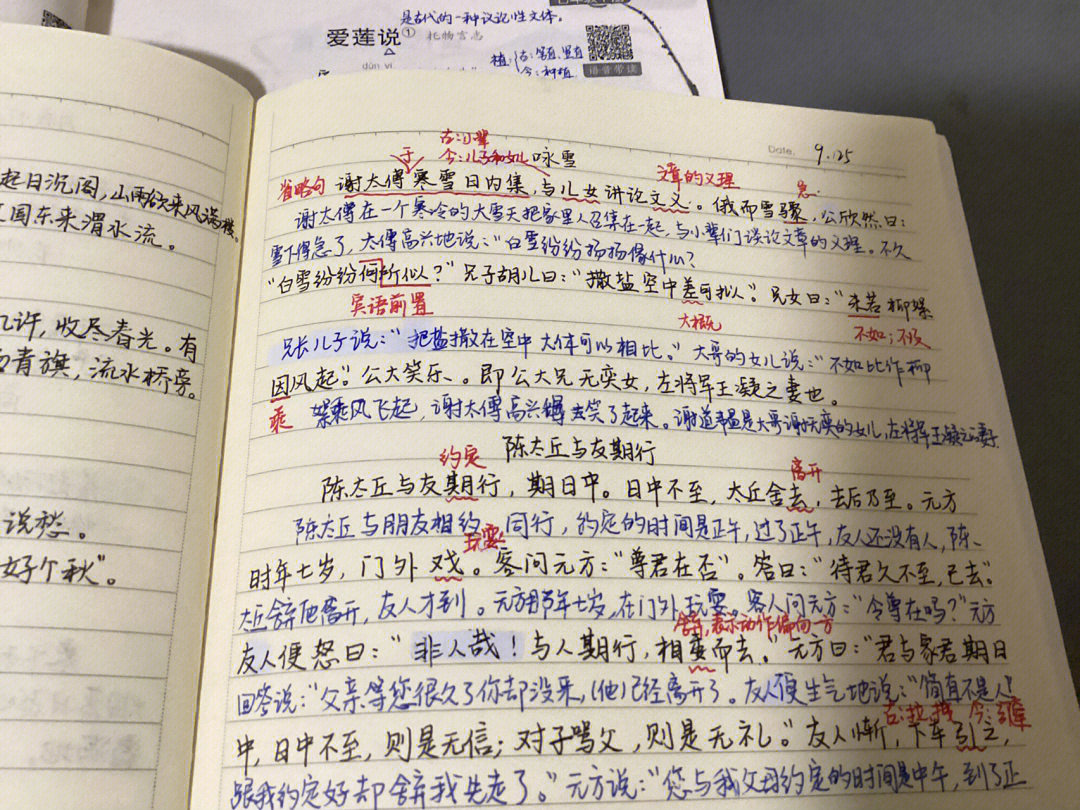 是古代的一种议论性文体。
爱莲说① 托物言志
植:{古:竖直、竖直
今:种植
语音带读
起日沉阁,山雨欲来风满楼。
国东来渭水流。
几许,收尽春光。有
青旗,流水桥旁。
说愁。
好个秋"。
Date. 9.25
古:小辈
今:儿子和女儿
于
咏雪
省略句
文章的义理
急
谢太傅寒雪日内集,与儿女讲论文义。俄而雪骤,公欣然曰:
谢太傅在一个寒冷的大雪天把家里人召集在一起,与小辈们谈论文章的义理。不久
雪下得急了,太傅高兴地说:"白雪纷纷扬扬像什么?
"白雪纷纷何所似?"兄子胡儿曰:"撒盐空中差可拟"。兄女曰:"未若柳絮
宾语前置
大概
不如;不及
兄长儿子说:"把盐撒在空中大体可以相比。"大哥的女儿说:"不如比作柳
因风起"。公大笑乐、。即公大兄无奕女,左将军王凝之妻也。
乘
絮乘风飞起,谢太傅高兴得去笑了起来。谢道韫是大哥谢无奕的女儿,左将军王凝之妻
约定
陈太丘与友期行
离开
陈太丘与友期行,期日中。日中不至,太丘舍去,去后乃至。元方
陈太丘与朋友相约同行,约定的时间是正午,过了正午,友人还没有人,陈、
玩耍
时年七岁,门外戏。客问元方:"尊君在否"。答曰:"待君久不至,已去"。
太丘舍他离开,友人才到。元方那年七岁,在门外玩耍。客人问元方:"令尊在吗?"元方
舍弃,表示动作偏向一方
友人便怒曰:"非人哉!与人期行,相委而去。"元方曰:"君与家君期日
回答说:"父亲等您很久了你却没来,(他)已经离开了。友人便生气地说:"简直不是人!
古:拉,拽 今:
中,日中不至,则是无信;对子骂父,则是无礼。"友人惭,下车引之,
跟我约定好却舍弃我先走了。"元方说:"您与我父母约定的时间是中午,到了正